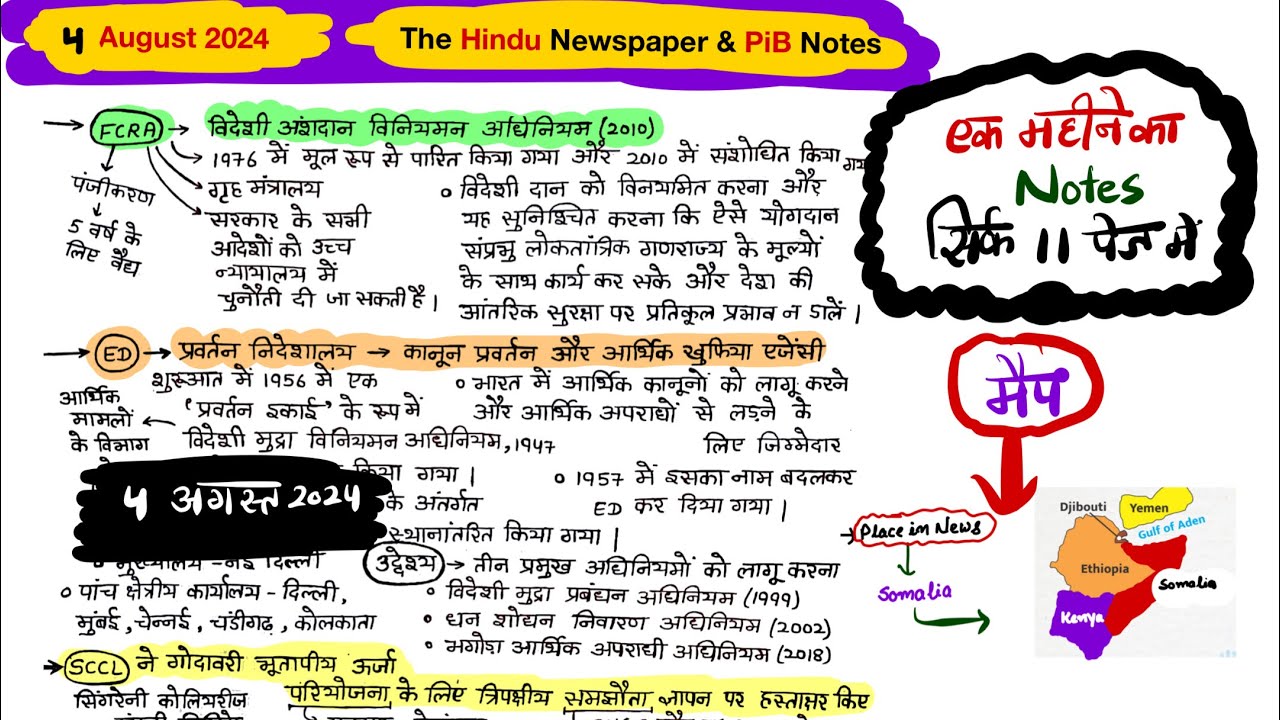 4 August 2024
The Hindu Newspaper & PiB Notes
FCRA → विदेशी अंशदान विनियमन अधिनियम (2010)
1976 में मूल रूप से पारित किया गया और 2010 में संशोधित किया गया
पंजीकरण
5 वर्ष के
लिए वैद्य
गृह मंत्रालय
सरकार के सभी
आदेशों को उच्च
न्यायालय में
चुनौती दी जा सकती है।
० विदेशी दान को विनयमित करना और
यह सुनिश्चित करना कि ऐसे योगदान
संप्रभु लोकतांत्रिक गणराज्य के मूल्यों
के साथ कार्य कर सके और देश की
आंतरिक सुरक्षा पर प्रतिकूल प्रभाव न डालें।
ED → प्रवर्तन निदेशालय → कानून प्रवर्तन और आर्थिक खुफिया एजेंसी
शुरूआत में 1956 में एक
'प्रवर्तन इकाई' के रूप में
विदेशी मुद्रा विनियमन अधिनियम, 1947
आर्थिक
मामलों
के विभाग
किया गया।
के अंतर्गत
स्थानांतरित किया गया।
० भारत में आर्थिक कानूनों को लागू करने
और आर्थिक अपराधों से लड़ने के
लिए जिम्मेदार
० 1957 में इसका नाम बदलकर
ED कर दिया गया।
4 अगस्त 2024
० मुख्यालय - नई दिल्ली
० पांच क्षेत्रीय कार्यालय - दिल्ली,
मुंबई, चेन्नई, चंडीगढ़, कोलकाता
उद्देश्य → तीन प्रमुख अधिनियमों को लागू करना
• विदेशी मुद्रा प्रबंधन अधिनियम (1999)
• धन शोधन निवारण अधिनियम (2002)
• भगोड़ा आर्थिक अपराधी अधिनियम (2018)
SCCL ने गोदावरी भूतापीय ऊर्जा
सिंगरेनी कोलियरीज
परियोजना के लिए त्रिपक्षीय समझौता ज्ञापन पर हस्ताक्षर किए
एक महीने का
Notes
सिर्फ 11 पेज में
मैप
Place in News
Somalia
Djibouti
Yemen
Gulf of Aden
Ethiopia
Somalia
Kenya